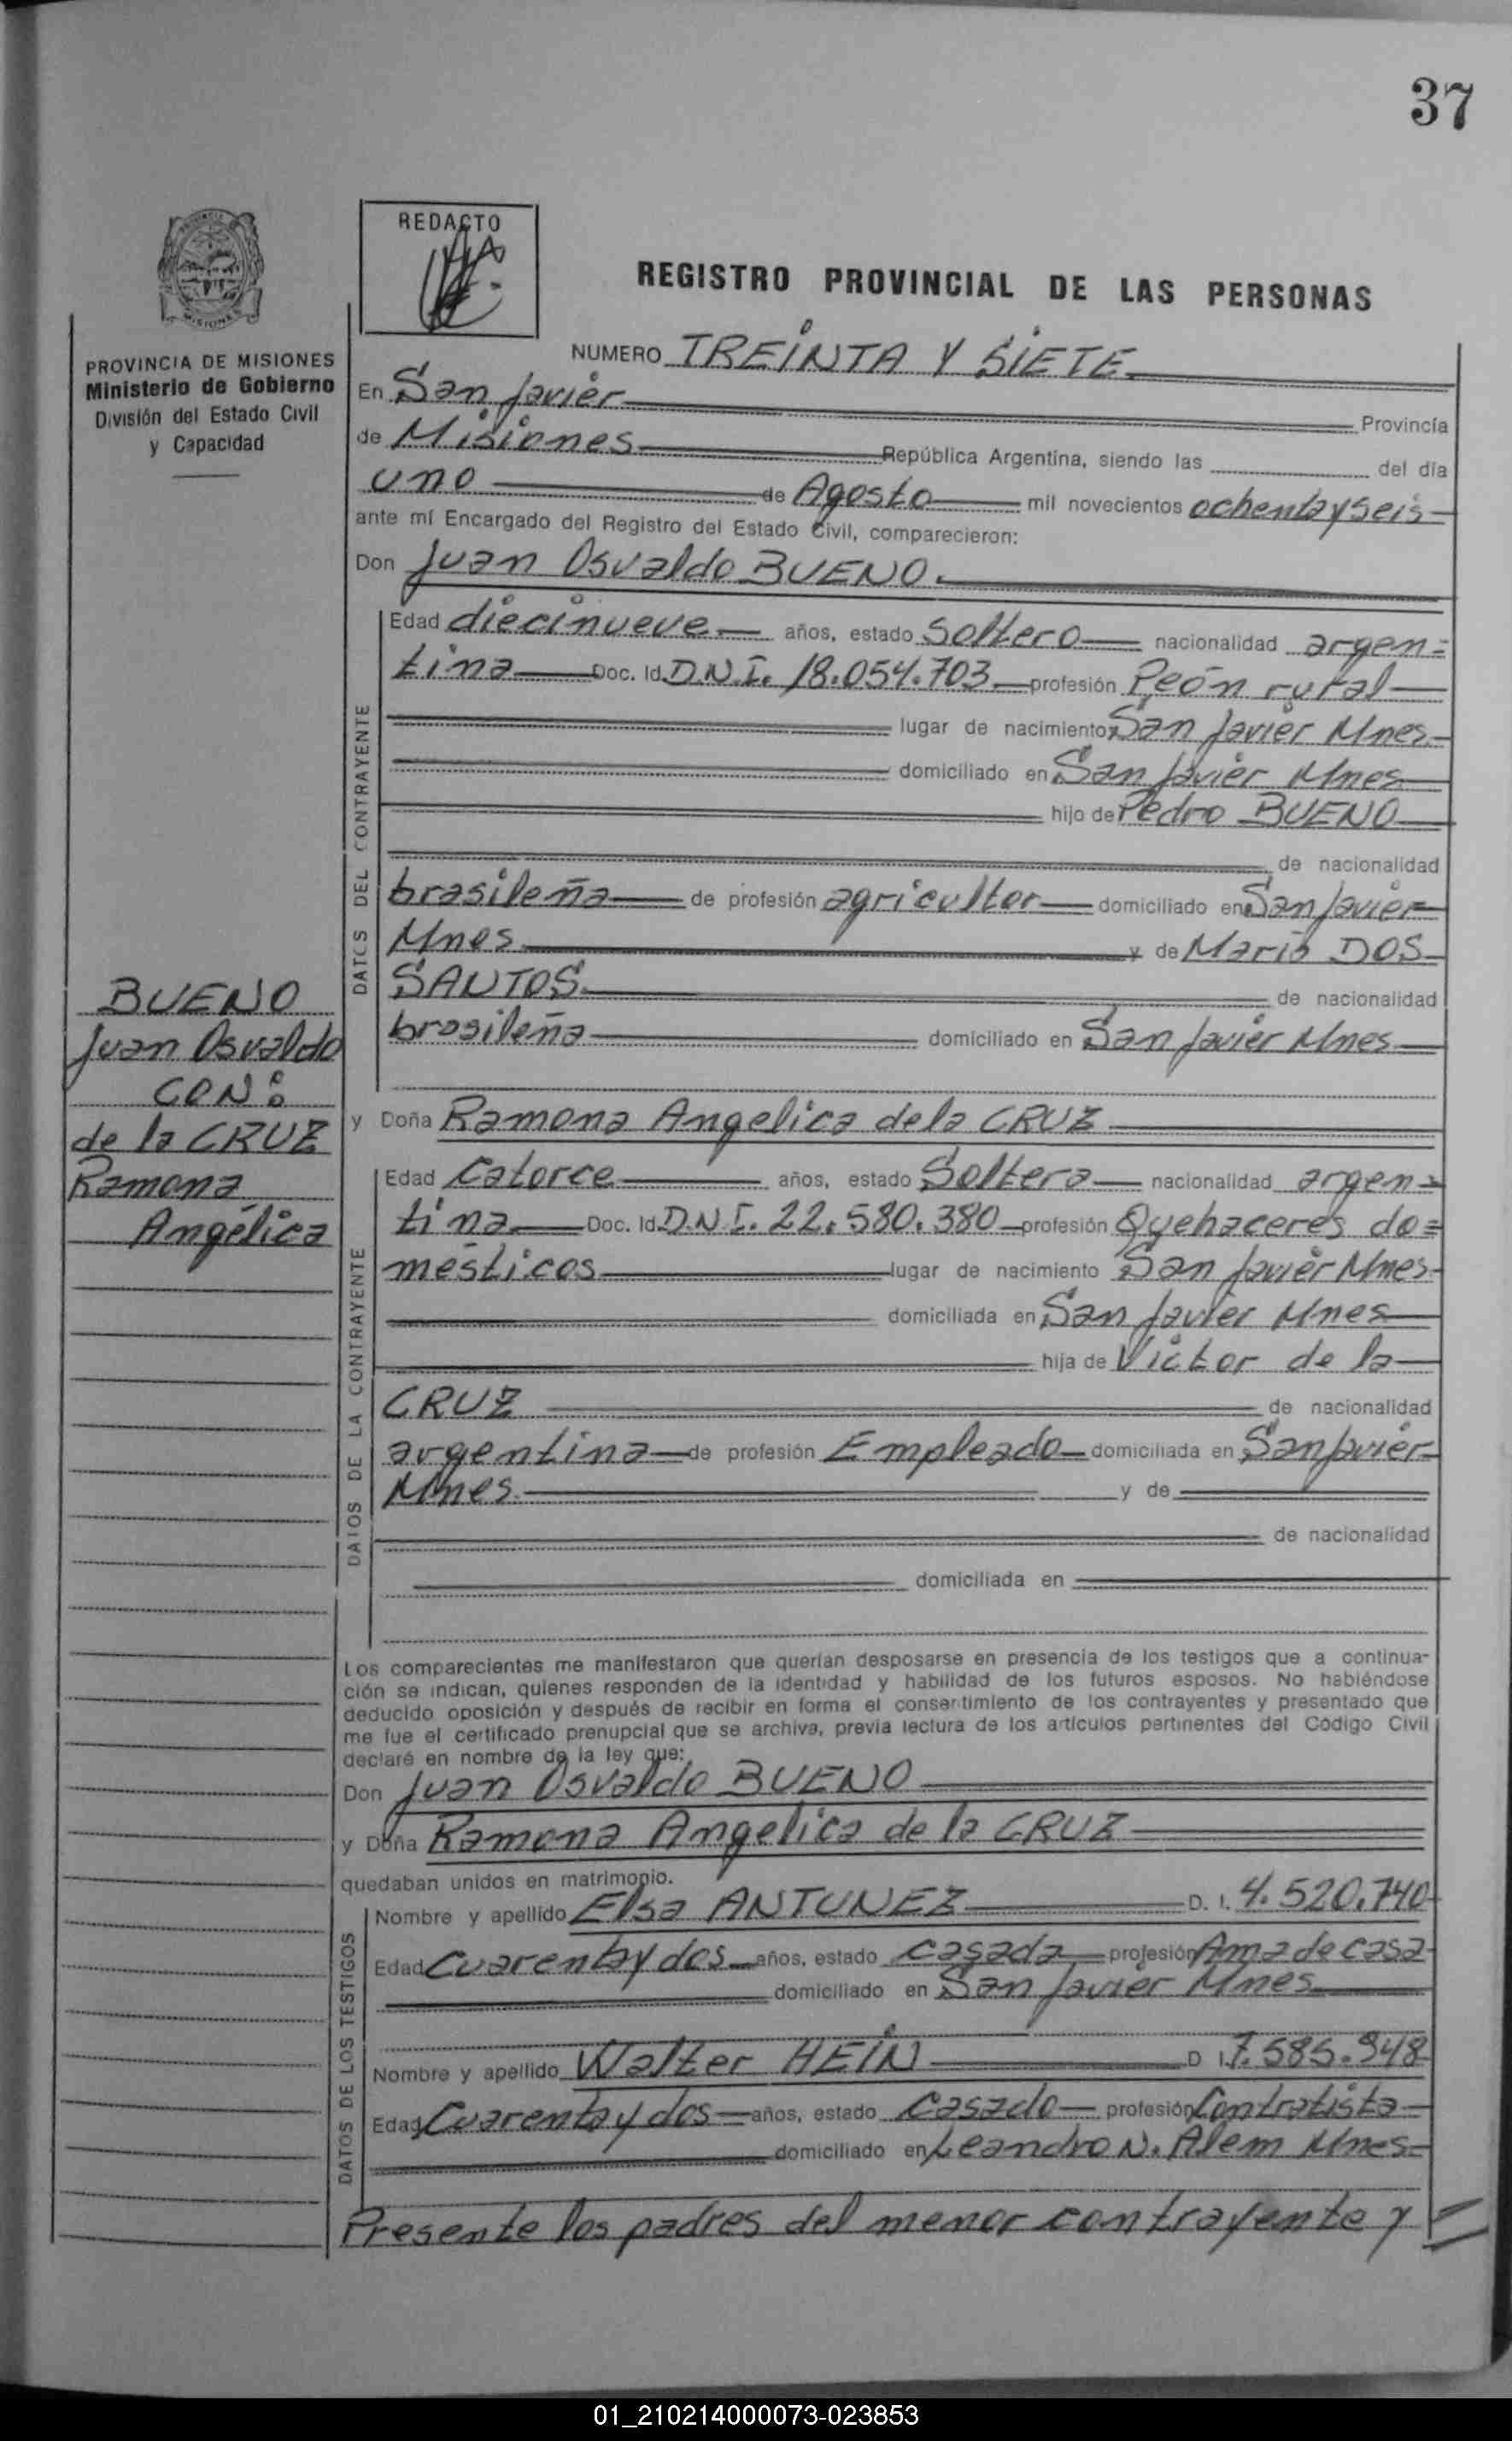 37
REDACTO
REGISTRO PROVINCIAL DE LAS PERSONAS
MISIONES
PROVINCIA DE MISIONES
Ministerio de Gobierno
División del Estado Civil
y Capacidad
NUMERO TREINTA Y SIETE
En San Javier Provincia
de Misiones República Argentina, siendo las del día
uno de Agosto mil novecientos ochenta y seis
ante mí Encargado del Registro del Estado Civil, comparecieron:
Don Juan Osvaldo BUENO.
DATOS DEL CONTRAYENTE
Edad diecinueve años, estado Soltero nacionalidad argen=
tina Doc. Id. D.N.I. 18.054.703 profesión Peón rural
lugar de nacimiento San Javier Mnes
domiciliado en San Javier Mnes
hijo de Pedro BUENO
de nacionalidad
brasileña de profesión agricultor domiciliado en San Javier
Mnes y de Maria DOS
SANTOS de nacionalidad
brasileña domiciliado en San Javier Mnes
BUENO
Juan Osvaldo
CON:
de la CRUZ
Ramona
Angélica
y Doña Ramona Angelica de la CRUZ
DATOS DE LA CONTRAYENTE
Edad Catorce años, estado Soltera nacionalidad argen=
tina Doc. Id. D.N.I. 22.580.380 profesión Quehaceres do=
mésticos lugar de nacimiento San Javier Mnes
domiciliada en San Javier Mnes
hija de Victor de la
CRUZ de nacionalidad
argentina de profesión Empleado domiciliada en San Javier
Mnes y de
de nacionalidad
domiciliada en
Los comparecientes me manifestaron que querían desposarse en presencia de los testigos que a continua-
ción se indican, quienes responden de la identidad y habilidad de los futuros esposos. No habiéndose
deducido oposición y después de recibir en forma el consentimiento de los contrayentes y presentado que
me fue el certificado prenupcial que se archiva, previa lectura de los artículos pertinentes del Código Civil
declaré en nombre de la ley que:
Don Juan Osvaldo BUENO
y Doña Ramona Angelica de la CRUZ
quedaban unidos en matrimonio.
DATOS DE LOS TESTIGOS
Nombre y apellido Elsa ANTUNEZ D. I. 4.520.740
Edad Cuarenta y dos años, estado casada profesión Ama de casa
domiciliado en San Javier Mnes
Nombre y apellido Walter HEIN D I. 7.585.948
Edad Cuarenta y dos años, estado casado profesión Contratista
domiciliado en Leandro N. Alem Mnes
Presente los padres del menor contrayente y
01_210214000073-023853